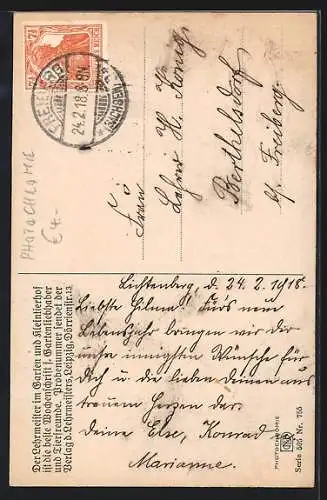 PHOTOCHEMIE
€ 4.-
7½
FREIBERG
24.2.18. 8-9N.
Frau
Lehrer H. König
Berthelsdorf
b/ Freiberg.
Lichtenberg d. 24.2.1918.
Liebste Hilma! Fürs neue
Lebensjahr bringen wir dir
unsre innigsten Wünsche für
Dich u. die lieben Deinen aus
treuem Herzen dar.
Deine Else, Konrad
Marianne.
Der Lehrmeister im Garten und Kleintierhof
ist die beste Wochenschrift f. Gartenliebhaber
und Tierfreunde. Probenummer sendet der
Verlag d. Lehrmeisters, Leipzig, Dörrienstr. 13
PHOTOCHEMIE
Serie 505 Nr. 755